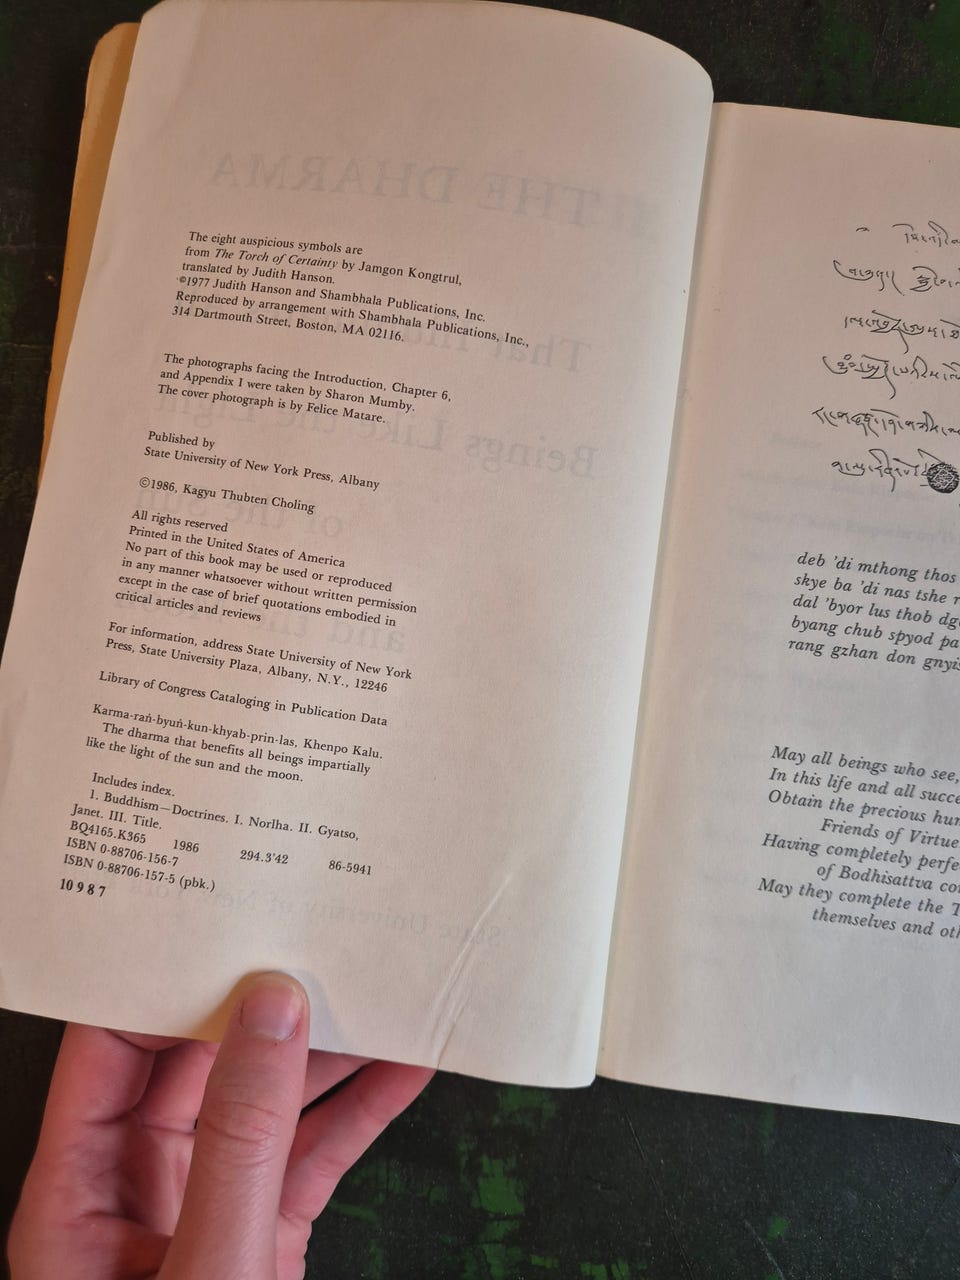 The eight auspicious symbols are
from The Torch of Certainty by Jamgon Kongtrul,
translated by Judith Hanson.
©1977 Judith Hanson and Shambhala Publications, Inc.
Reproduced by arrangement with Shambhala Publications, Inc.,
314 Dartmouth Street, Boston, MA 02116.
The photographs facing the Introduction, Chapter 6,
and Appendix I were taken by Sharon Mumby.
The cover photograph is by Felice Matare.
Published by
State University of New York Press, Albany
©1986, Kagyu Thubten Choling
All rights reserved
Printed in the United States of America
No part of this book may be used or reproduced
in any manner whatsoever without written permission
except in the case of brief quotations embodied in
critical articles and reviews
For information, address State University of New York
Press, State University Plaza, Albany, N.Y., 12246
Library of Congress Cataloging in Publication Data
Karma-raṅ-byuṅ-kun-khyab-prin-las, Khenpo Kalu.
The dharma that benefits all beings impartially
like the light of the sun and the moon.
Includes index.
1. Buddhism—Doctrines. I. Norlha. II. Gyatso,
Janet. III. Title.
BQ4165.K365 1986 294.3'42 86-5941
ISBN 0-88706-156-7
ISBN 0-88706-157-5 (pbk.)
10 9 8 7
deb 'di mthong thos
skye ba 'di nas tshe
dal 'byor lus thob
byang chub spyod
rang gzhan don
May all beings who see,
In this life and all
Obtain the precious
Friends of Virtue
Having completely
of Bodhisattva
May they complete the
themselves and